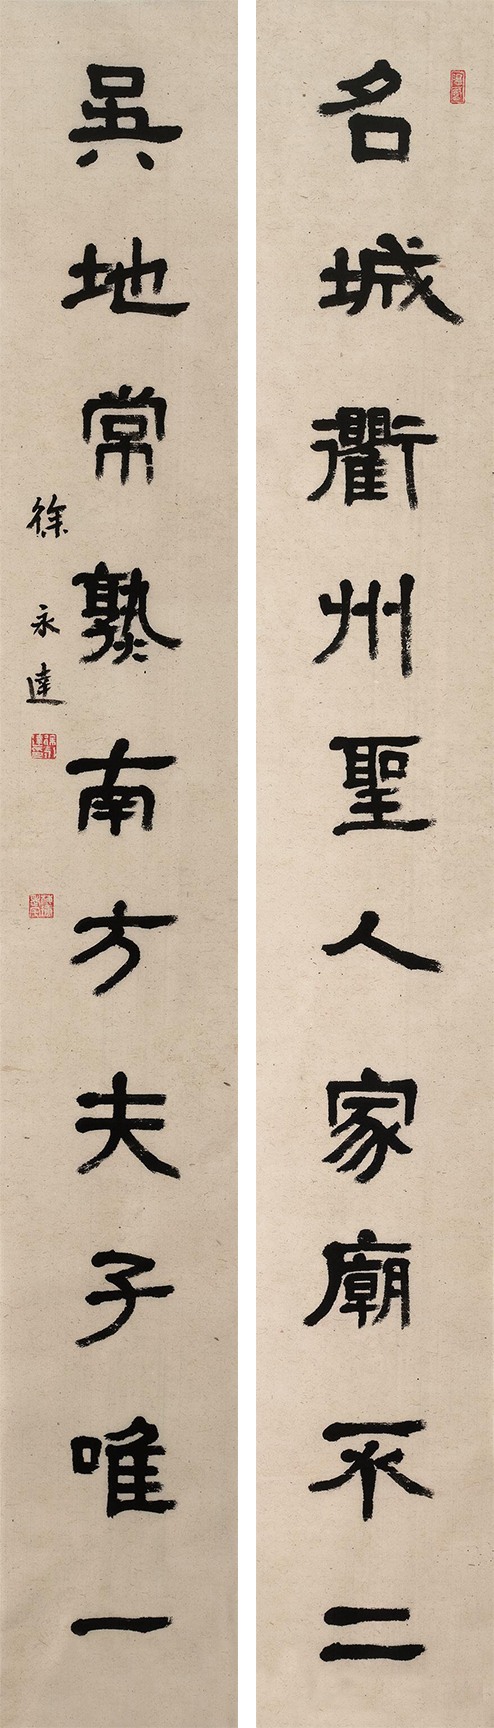 名城衢州聖人家廟不二
吳地常熟南方夫子唯一
徐永達